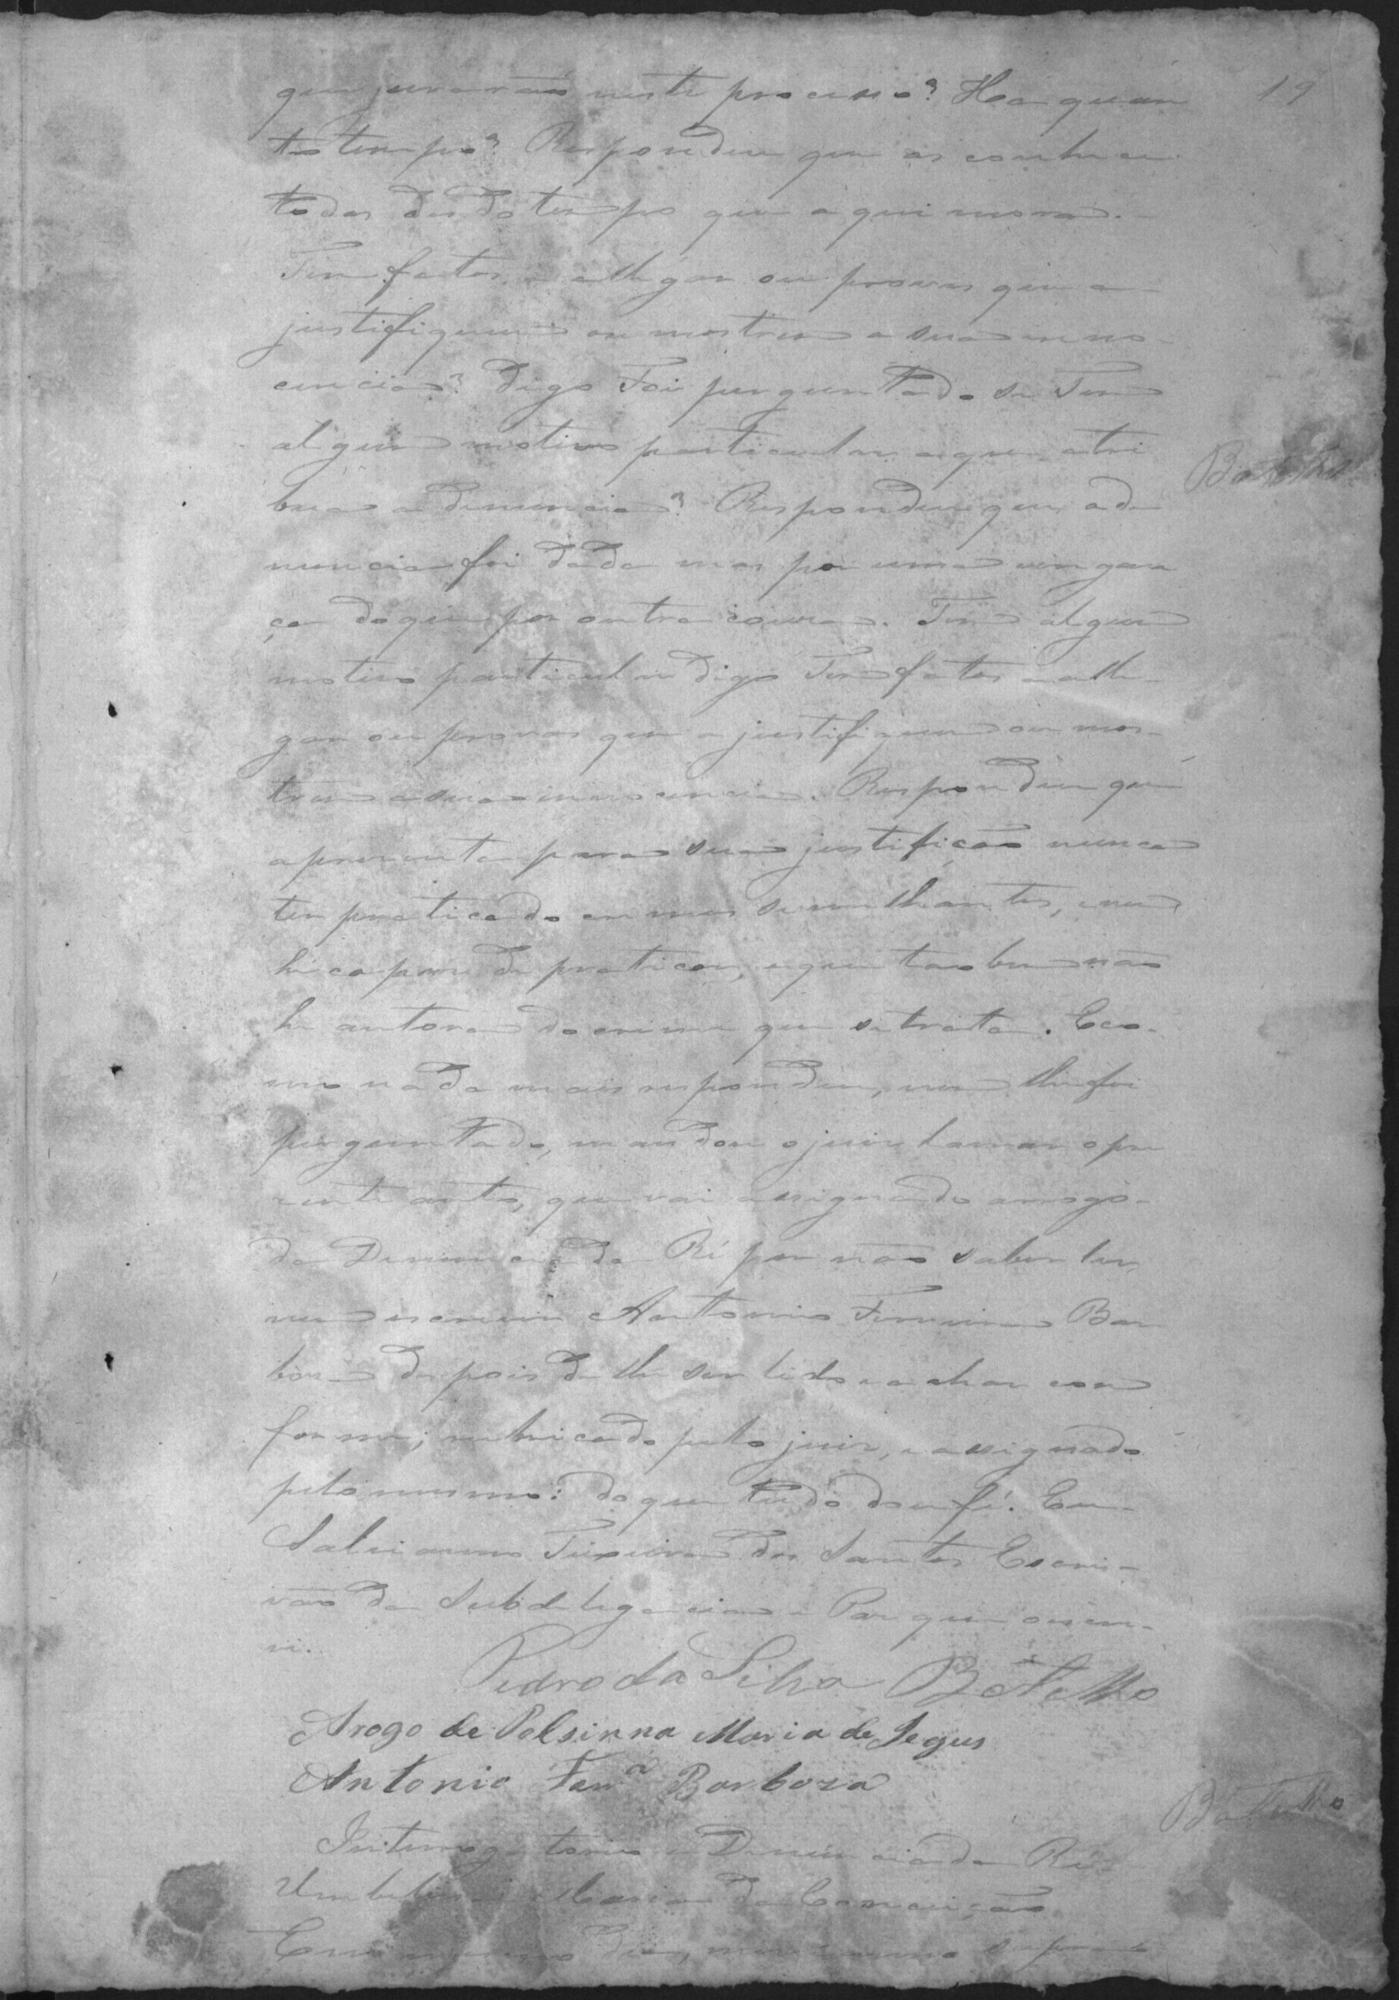 que jurarão neste processo? Ha quan
19
to tempo? Respondeu que as conhece
todas desdo tempo que aqui mora.
Tem factos a allegar ou provas que a
justifiquem ou mostrem a sua inno-
cencia? Digo Foi perguntado se Tem
algum motivo particular a que atri
Botelho
bua a denuncia? Respondeu que a de
nuncia foi dada mas por uma vingan
ça do que por outra couza. Tem algum
motivo particular digo Tem factos a alle-
gar ou provas que a justifiquem ou mos-
trem a sua innocencia. Respondeu que
apresenta para sua justificão nunca
ter praticado crimes semelhantes, e nem
he capaz de praticar, e que tão bem não
he autora do crime que se trata. E co-
mo nada mais respondeu, nem lhe foi
perguntado, mandou o juiz lavrar o pre
zente auto, que vai assignado arrogo
da Denunciada Ré por não saber ler
nem escrever Antonio Ferreira Bar
boza depois de lhe ser lido e achar con
forme; rubricado pelo juiz, e assignado
pelo mesmo: do que tudo dou fé. Eu
Salviano Teixeira dos Santos Escri-
vão da Subdelegacia e Paz que o escre-
vi.
Pedro da Silva Botelho
Arogo de Pelsirna Maria de Jegus
Antonio Ferrª Barboza
Botelho
Interrogatorio a Denunciada Ré
Umbelina Maria da Conceição
Em o mesmo dia, mez e anno supra